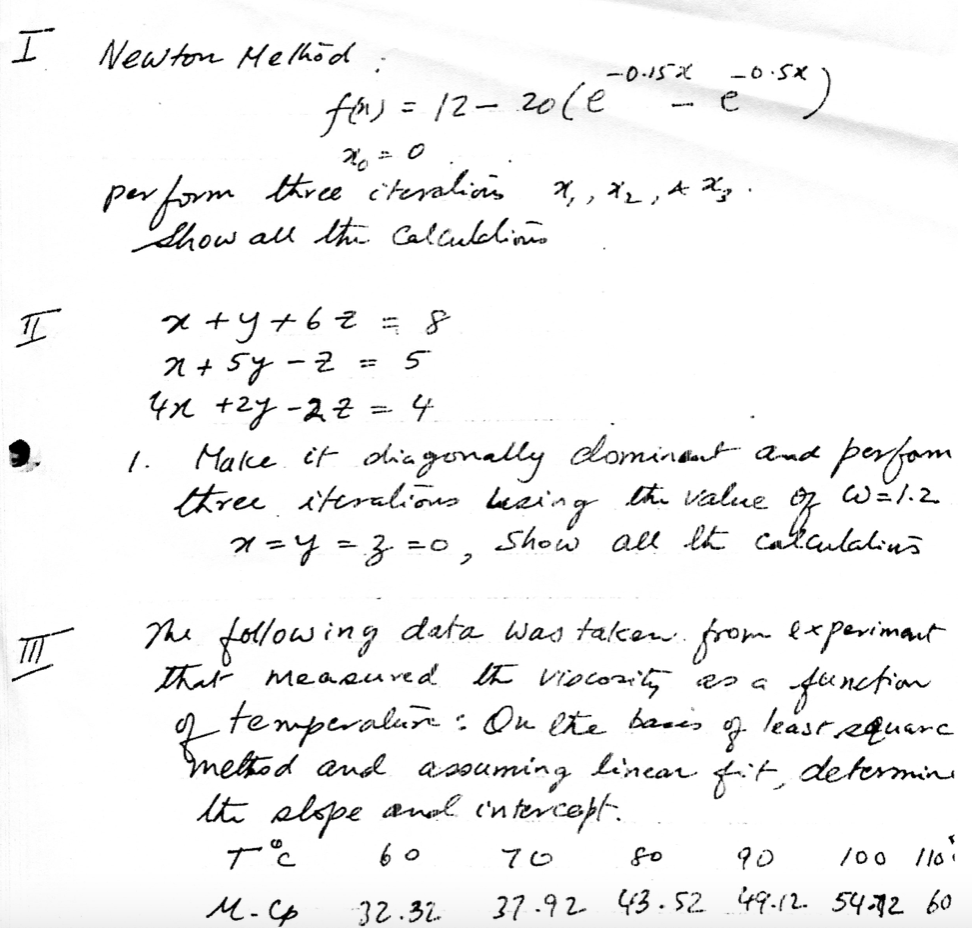 I Newton Method :
f(x) = 12 - 20(e^-0.15x - e^-0.5x)
x₀ = 0
perform three iterations x₁, x₂, & x₃.
Show all the calculations
II x + y + 6z = 8
x + 5y - z = 5
4x + 2y - 2z = 4
1. Make it diagonally dominant and perform
three iterations using the value of ω=1.2
x = y = z = 0, Show all the calculations
III The following data was taken from experiment
that measured the viscosity as a function
of temperature : On the basis of least square
method and assuming linear fit, determine
the slope and intercept.
T°C 60 70 80 90 100 110
M-Cp 32.32 37.92 43.52 49.12 60